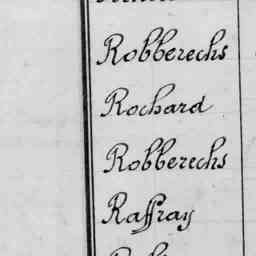 Robberechs
Rochard
Robberechs
Raffray